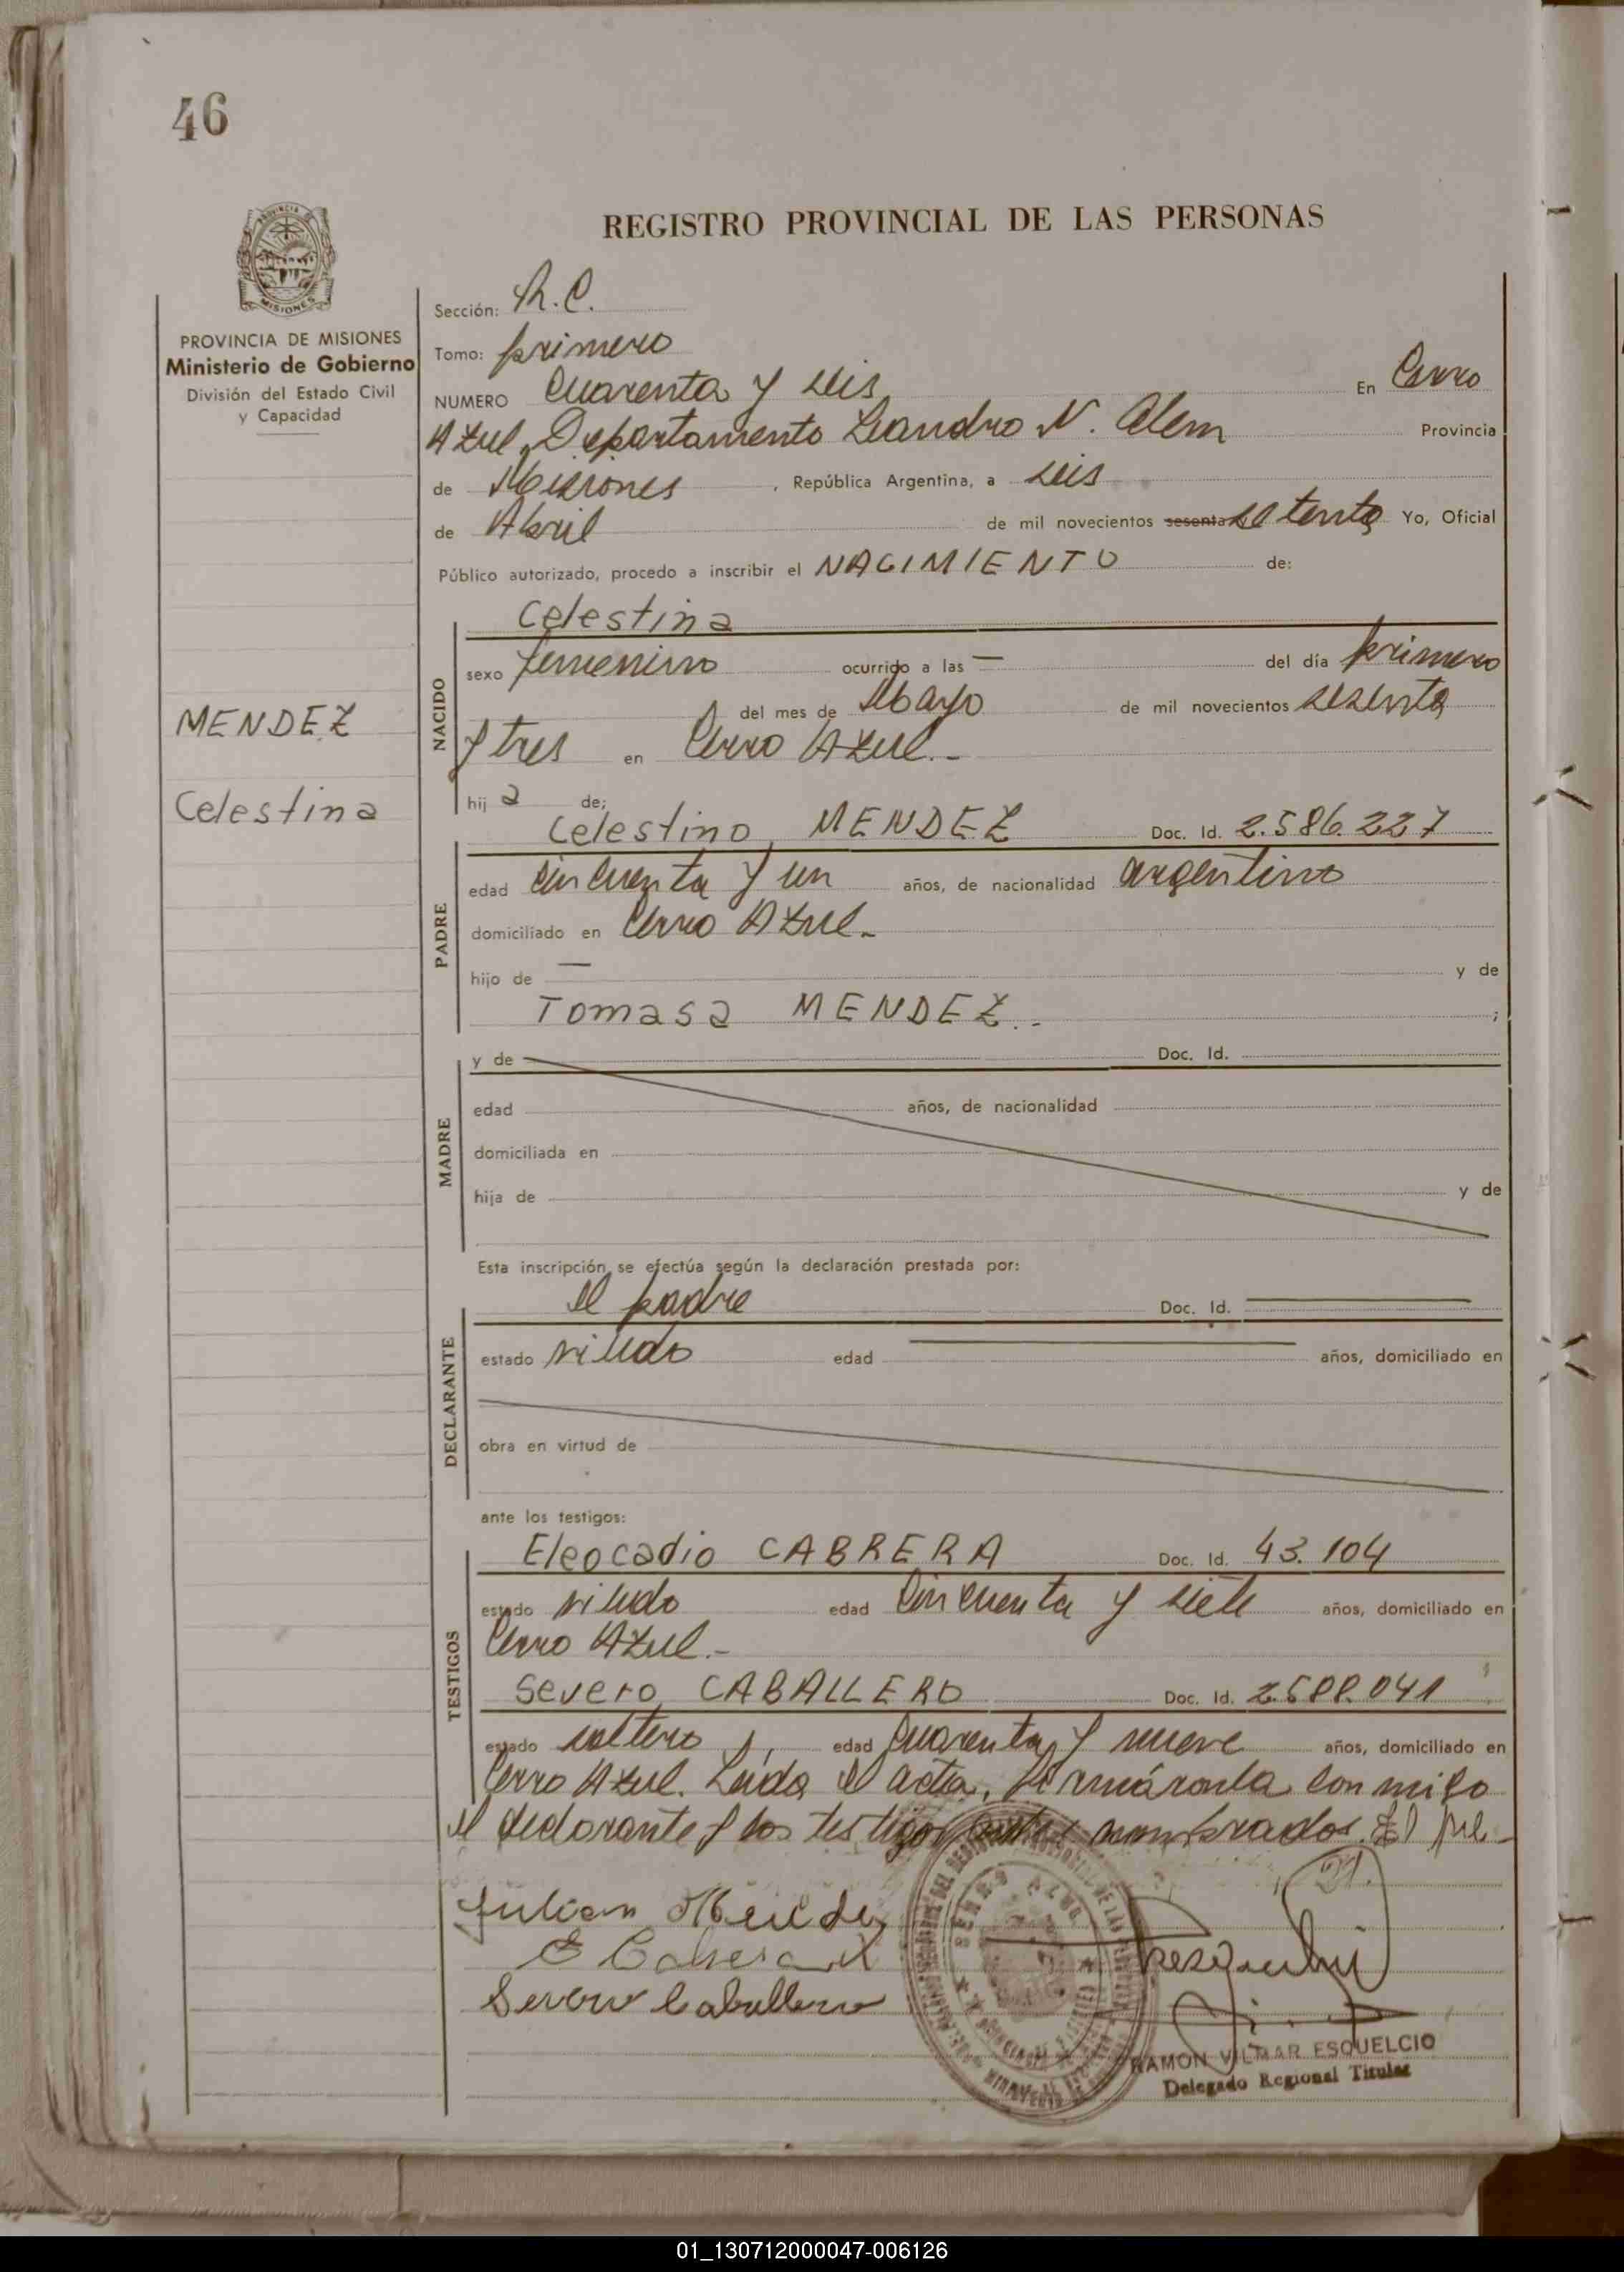 46
REGISTRO PROVINCIAL DE LAS PERSONAS
PROVINCIA DE MISIONES
Ministerio de Gobierno
División del Estado Civil
y Capacidad
MENDEZ
Celestina
Sección: R.C.
Tomo: primero
NUMERO Cuarenta y seis En Cerro
Azul, Departamento Leandro N. Alem Provincia
de Misiones, República Argentina, a seis
de Abril de mil novecientos sesenta setenta Yo, Oficial
Público autorizado, procedo a inscribir el NACIMIENTO de:
NACIDO
Celestina
sexo femenino ocurrido a las — del día primero
del mes de Mayo de mil novecientos sesenta
y tres en Cerro Azul.-
hija de;
PADRE
Celestino MENDEZ Doc. Id. 2.586.227
edad cincuenta y un años, de nacionalidad argentino
domiciliado en Cerro Azul.-
hijo de — y de
Tomasa MENDEZ.- ;
MADRE
y de Doc. Id.
edad años, de nacionalidad
domiciliada en
hija de y de
Esta inscripción se efectúa según la declaración prestada por:
DECLARANTE
el padre Doc. Id.
estado viudo edad años, domiciliado en
obra en virtud de
ante los testigos:
TESTIGOS
Eleocadio CABRERA Doc. Id. 43.104
estado viudo edad cincuenta y siete años, domiciliado en
Cerro Azul.-
Severo CABALLERO Doc. Id. 2.588.041
estado soltero, edad cuarenta y nueve años, domiciliado en
Cerro Azul. Leída el acta, firmáronla conmigo
el declarante y los testigos antes nombrados. El
E Cabrera
Severo Caballero
RAMON VILMAR ESQUELCIO
Delegado Regional Titular
01_130712000047-006126